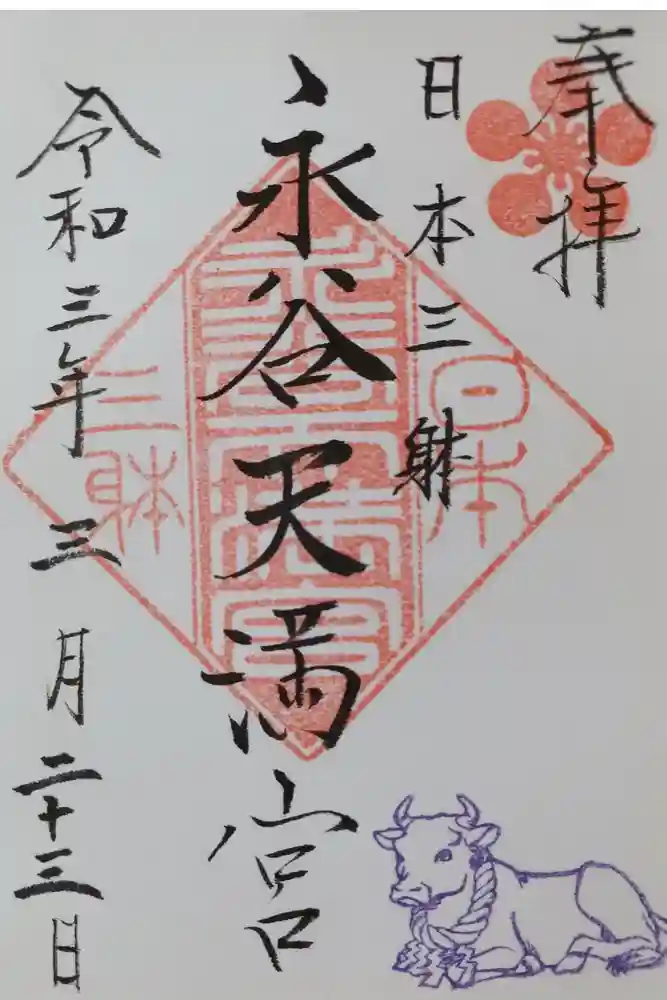 奉拝
日本三躰
永谷天満宮
令和三年三月二十三日
日本
三躰
永谷天満宮